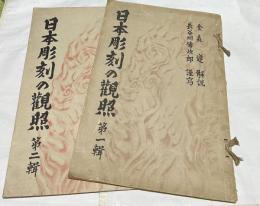 金森遵 解説
長谷川傳次郎 謹写
日本彫刻の觀照
第一輯
日本彫刻の觀照
第二輯